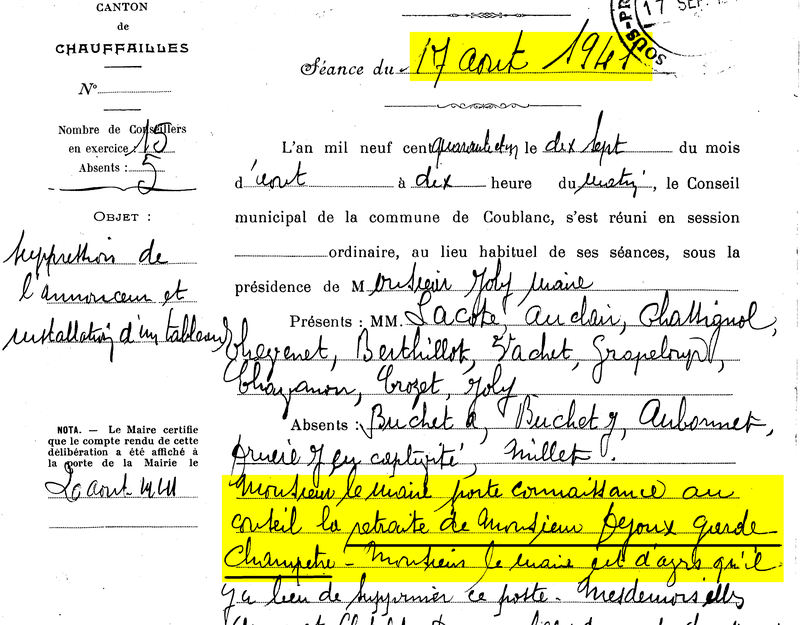 CANTON
de
CHAUFFAILLES
N°
Nombre de Conseillers
en exercice : 15
Absents : 5
OBJET :
Suppression de
l'annonceur et
installation d'un tableau
NOTA. — Le Maire certifie
que le compte rendu de cette
délibération a été affiché à
la porte de la Mairie le
20 aout 1941
17 SEP.
SOUS-PR
Séance du 17 aout 1941
L'an mil neuf cent quarante et un le dix sept du mois
d'aout à dix heure du matin, le Conseil
municipal de la commune de Coublanc, s'est réuni en session
ordinaire, au lieu habituel de ses séances, sous la
présidence de Monsieur Joly maire
Présents : MM. Lacote, Auclair, Chassignol,
Chevenet, Berthillot, Vachet, Grapeloup,
Chavanon, Crozet, Joly
Absents : Buchet a, Buchet J, Aubonnet,
J en captivité, Millet.
Monsieur le maire porte connaissance au
conseil la retraite de Monsieur Dejoux garde
Champetre – Monsieur le maire est d'avis qu'il
y a lieu de supprimer ce poste. Mesdemoiselles